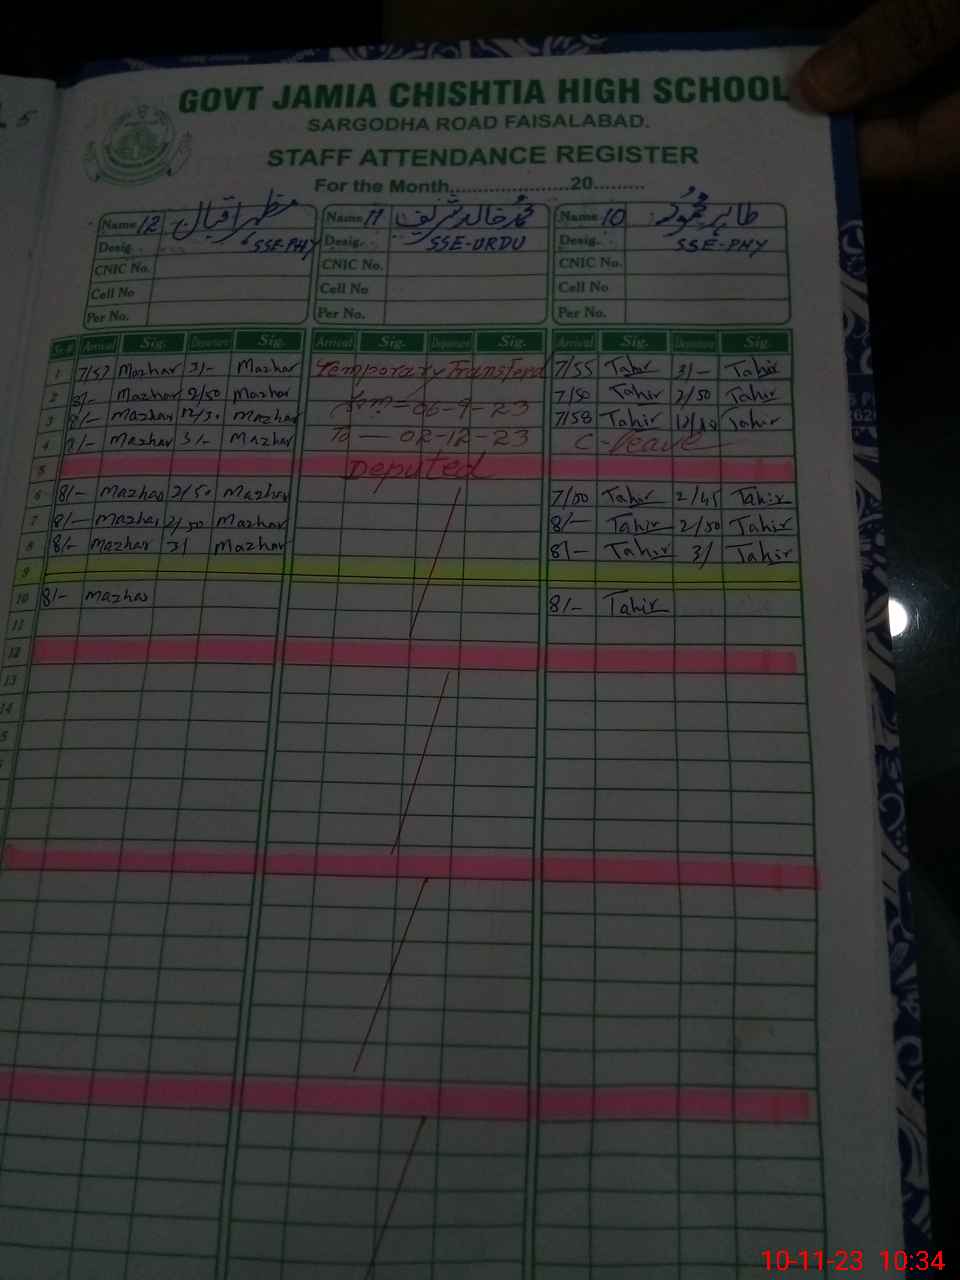 GOVT JAMIA CHISHTIA HIGH SCHOOL
SARGODHA ROAD FAISALABAD.
STAFF ATTENDANCE REGISTER
For the Month.....................20.........
Name 12 مظہر اقبال Name 11 محمد خالد شریف Name 10 طاہر محمود
Desig. SSE-PHY Desig. SSE-URDU Desig. SSE-PHY
CNIC No. CNIC No. CNIC No.
Cell No Cell No Cell No
Per No. Per No. Per No.
Sr.# Arrival Sig. Departure Sig. Arrival Sig. Departure Sig. Arrival Sig. Departure Sig.
1 7/57 Mazhar 3/- Mazhar Temporary Transferd 7/55 Tahir 3/- Tahir
2 8/- Mazhar 2/50 Mazhar 06-9-23 7/50 Tahir 2/50 Tahir
3 8/- Mazhar 12/30 Mazhar 7/58 Tahir 12/30 Tahir
4 8/- Mazhar 3/- Mazhar To — 02-12-23 C-Leave
5 Deputed
6 8/- Mazhar 2/50 Mazhar 7/50 Tahir 2/45 Tahir
7 8/- Mazhar 2/50 Mazhar 8/- Tahir 2/50 Tahir
8 8/- Mazhar 3/ Mazhar 8/- Tahir 3/ Tahir
9
10 8/- Mazhar 8/- Tahir
11
12
13
14
10-11-23 10:34